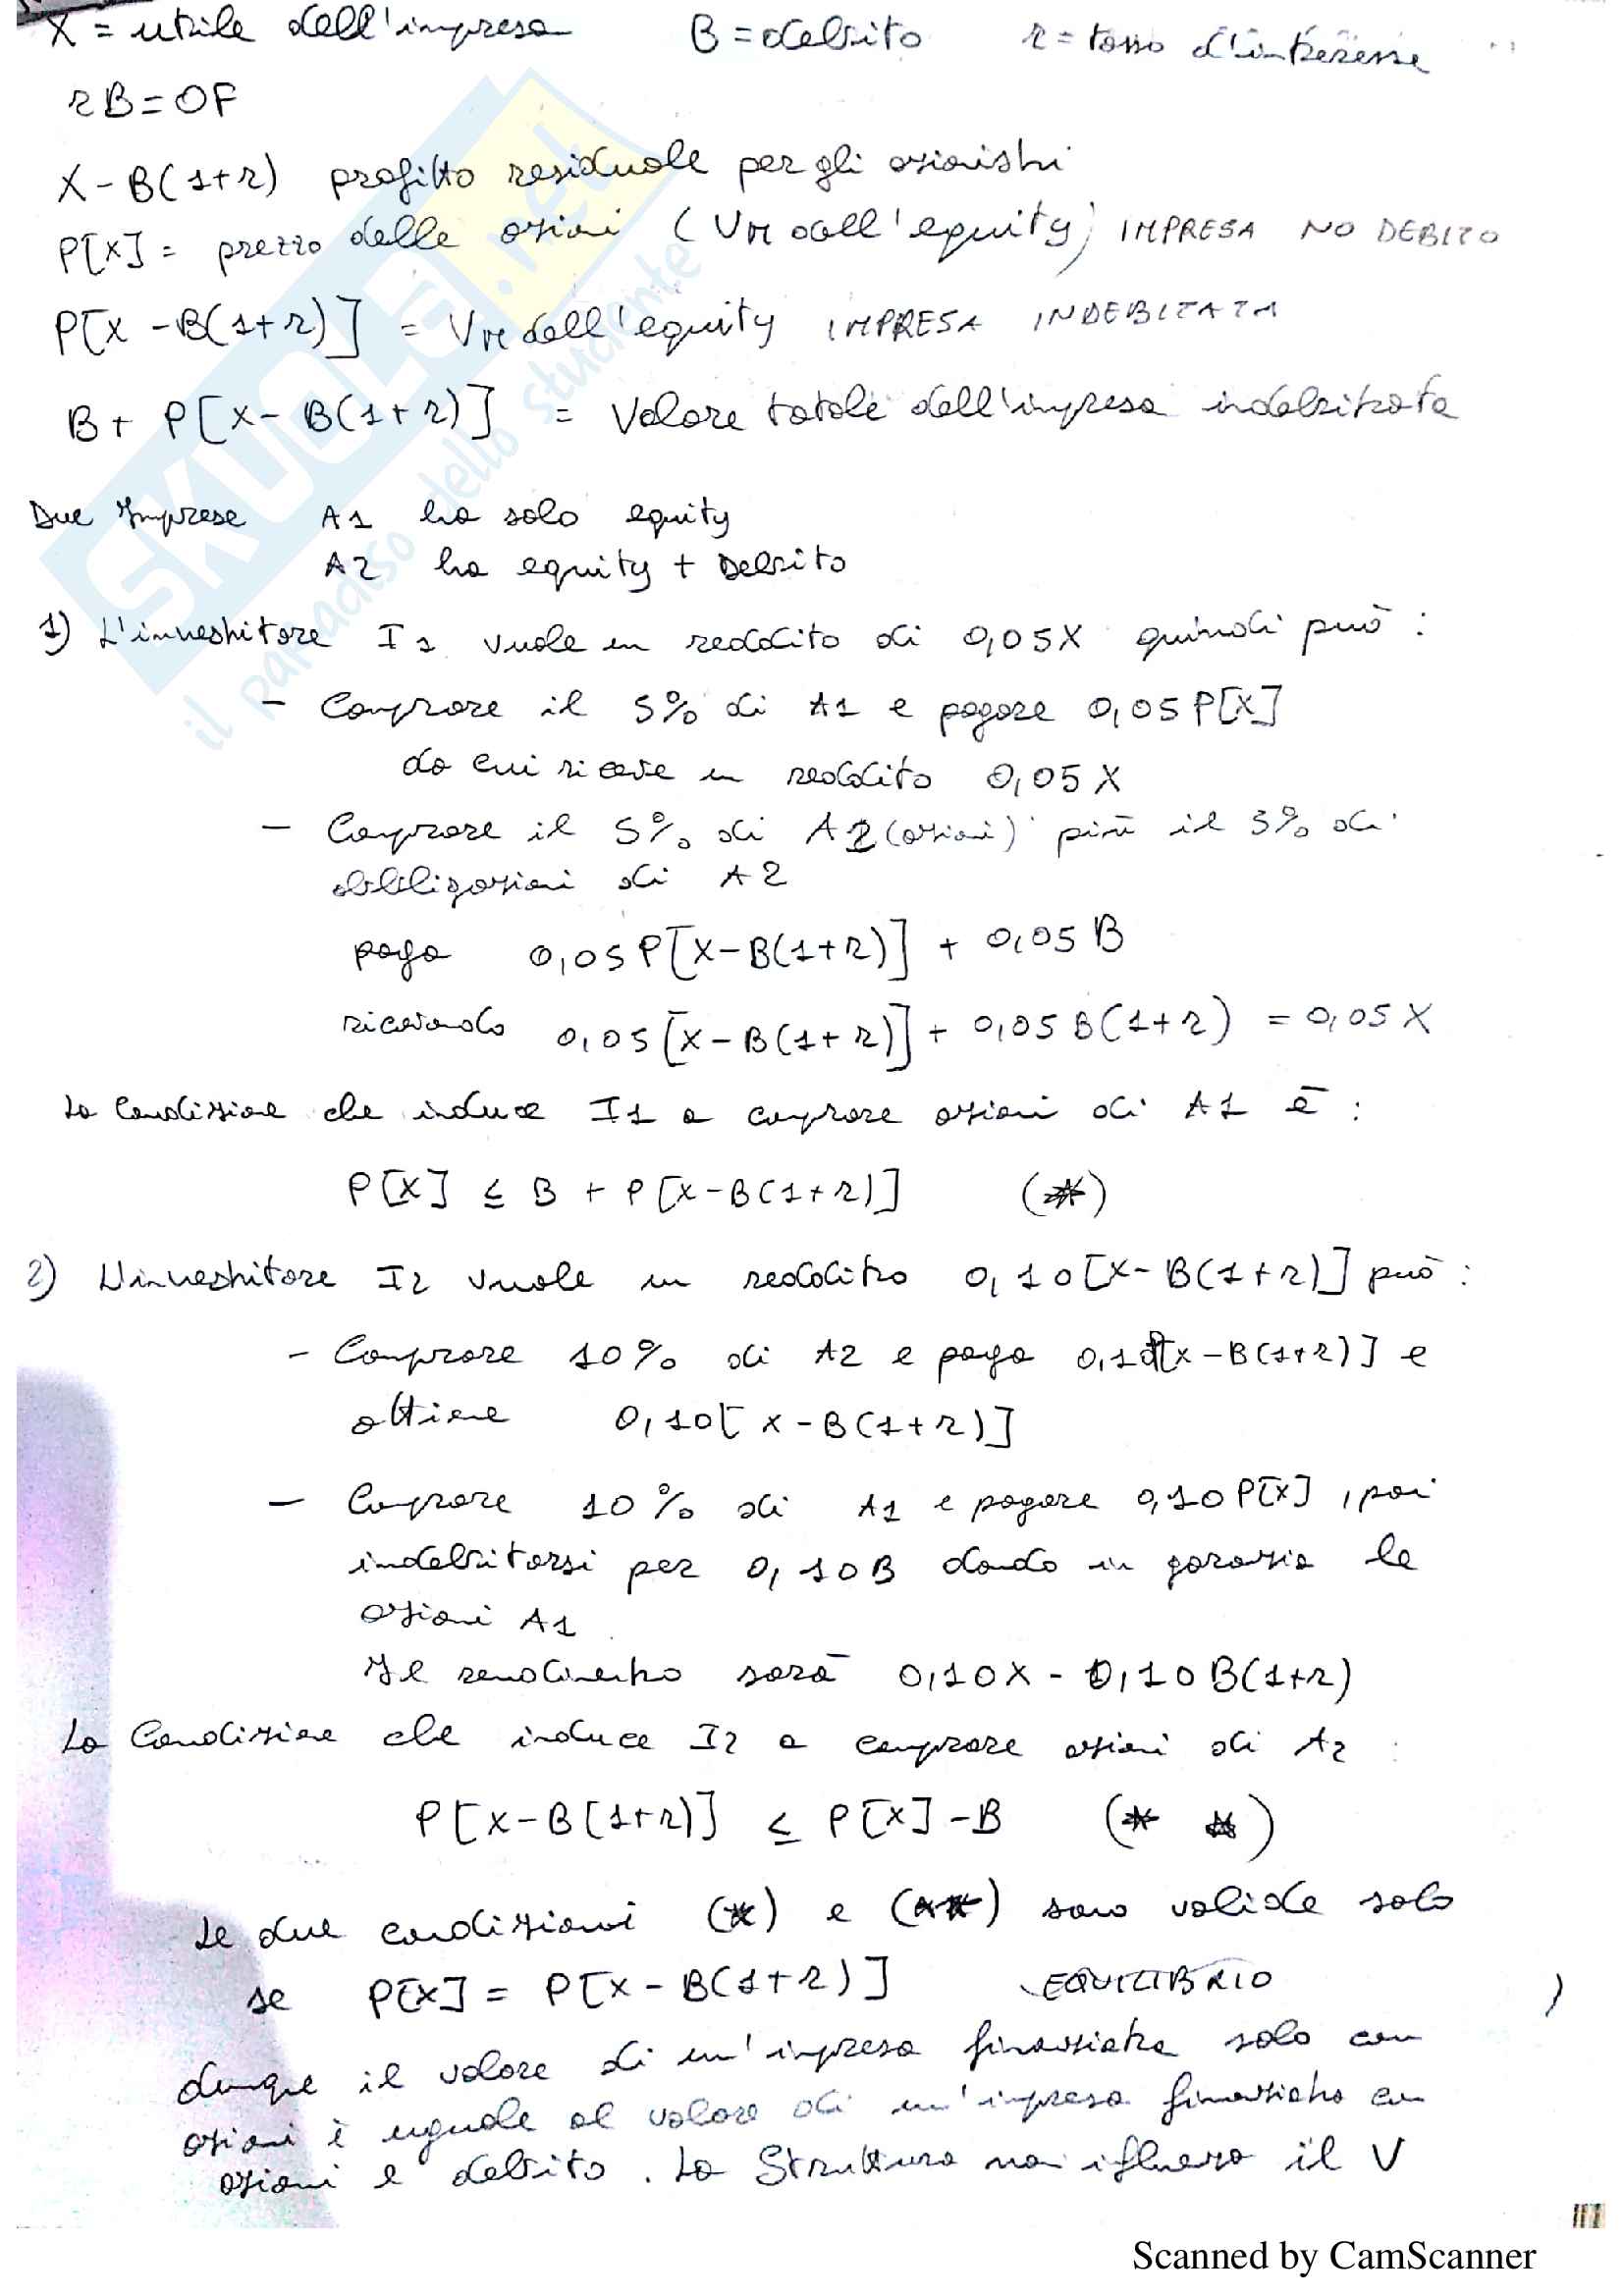 X = utile dell'impresa B = debito r = tasso d'interesse
rB = OF
X - B(1+r) profitto residuale per gli azionisti
P[X] = prezzo delle azioni (VM dell'equity) IMPRESA NO DEBITO
P[X - B(1+r)] = VM dell'equity IMPRESA INDEBITATA
B + P[X - B(1+r)] = Valore totale dell'impresa indebitata
Due Imprese A1 ha solo equity
A2 ha equity + Debito
1) L'investitore I1 vuole un reddito di 0,05X quindi può :
- Comprare il 5% di A1 e pagare 0,05 P[X]
da cui riceve un reddito 0,05 X
- Comprare il 5% di A2 (azioni) più il 5% di
obbligazioni di A2
paga 0,05 P[X-B(1+r)] + 0,05 B
ricavando 0,05 [X-B(1+r)] + 0,05 B(1+r) = 0,05 X
La Condizione che induce I1 a comprare azioni di A1 è :
P[X] ≤ B + P[X-B(1+r)] (*)
2) L'investitore I2 vuole un reddito 0,10[X-B(1+r)] può :
- Comprare 10% di A2 e paga 0,10P[X-B(1+r)] e
ottiene 0,10[X-B(1+r)]
- Comprare 10% di A1 e pagare 0,10P[X], poi
indebitarsi per 0,10B dando in garanzia le
azioni A1.
Il rendimento sarà 0,10X - 0,10B(1+r)
La Condizione che induce I2 a comprare azioni di A2 :
P[X-B(1+r)] ≤ P[X]-B (**)
Le due condizioni (*) e (**) sono valide solo
se P[X] = P[X-B(1+r)] EQUILIBRIO
dunque il valore di un'impresa finanziata solo con
azioni è uguale al valore di un'impresa finanziata con
azioni e debito. La Struttura non influenza il V
SKUOLA.net
il paradiso dello studente
Scanned by CamScanner